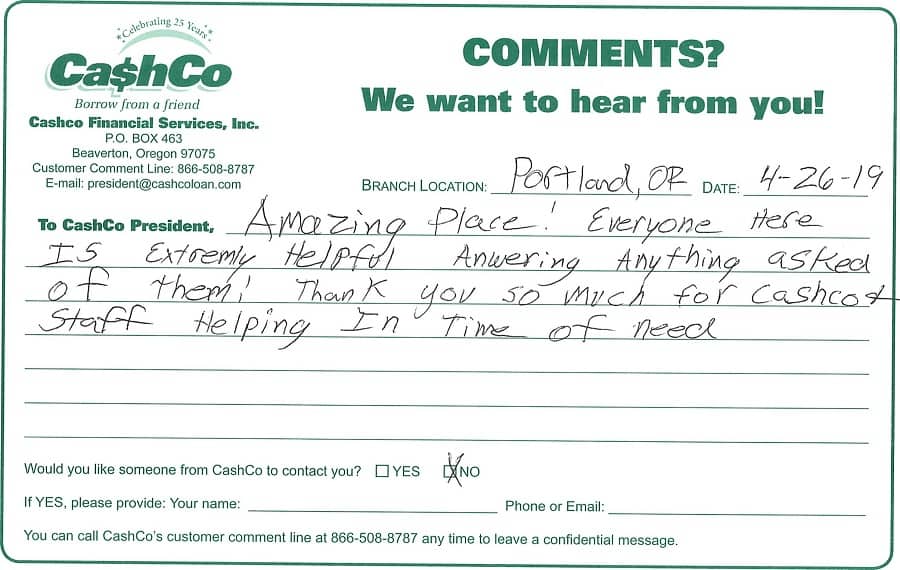 Celebrating 25 Years
Ca$hCo
Borrow from a friend
Cashco Financial Services, Inc.
P.O. BOX 463
Beaverton, Oregon 97075
Customer Comment Line: 866-508-8787
E-mail: president@cashcoloan.com
COMMENTS?
We want to hear from you!
BRANCH LOCATION: Portland, OR DATE: 4-26-19
To CashCo President, Amazing Place! Everyone Here
Is Extremly Helpful Anwering Anything asked
of them! Thank you so much for Cashco &
Staff Helping In Time of need
Would you like someone from CashCo to contact you? YES NO
If YES, please provide: Your name: Phone or Email:
You can call CashCo's customer comment line at 866-508-8787 any time to leave a confidential message.